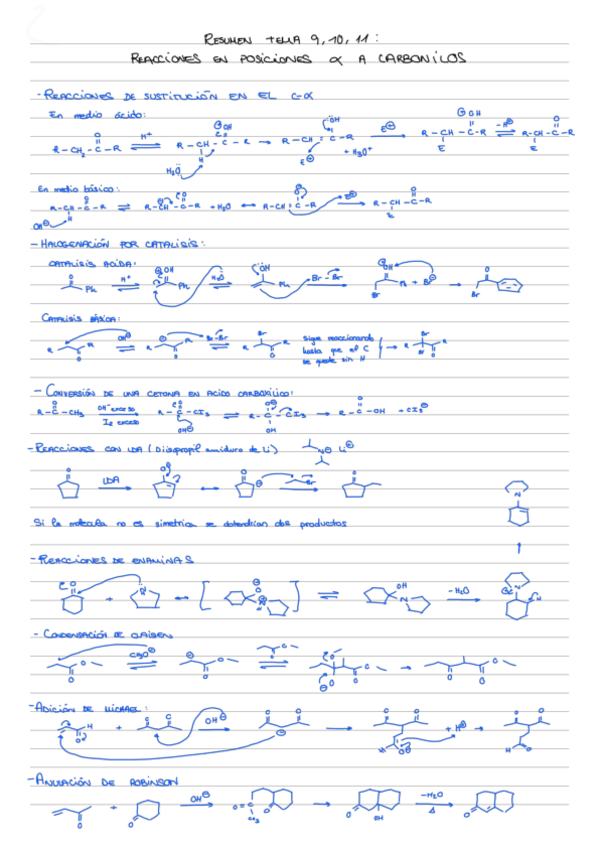 RESUMEN TEMA 9, 10, 11:
REACCIONES EN POSICIONES α A CARBONILOS
- REACCIONES DE SUSTITUCIÓN EN EL C-α
En medio ácido:
R-CH2-C-R H+ R-CH-C-R R-CH=C-R E⊕ R-CH-C-R -H⊕ R-CH-C-R
+ H3O+
En medio básico:
R-CH-C-R R-CH-C-R + H2O R-CH=C-R E⊕ R-CH-C-R
OH⊖ H E
- HALOGENACIÓN POR CATALISIS:
CATALISIS ACIDA:
Ph H+ Ph H2O Ph Br-Br Ph + Br⊖
Br Br
CATALISIS BÁSICA:
OH⊖ Br-Br Br sigue reaccionando
hasta que el C
se quede sin H
- CONVERSIÓN DE UNA CETONA EN ACIDO CARBOXÍLICO:
R-C-CH3 OH⊖ exceso R-C-CI3 R-C-CI3 R-C-OH + CI3⊖
I2 exceso OH⊖ OH
- REACCIONES CON LDA (Diisopropil amiduro de Li) N⊖ Li⊕
LDA Br
Si la molecula no es simetrica se obtendrian dos productos
- REACCIONES DE ENAMINAS
+ OH -H2O
- CONDENSACIÓN DE CLAISEN
- ADICIÓN DE MICHAEL:
+ OH⊖ + H⊕
- ANULACIÓN DE ROBINSON
+ OH⊖ CH3 OH -H2O
Δ